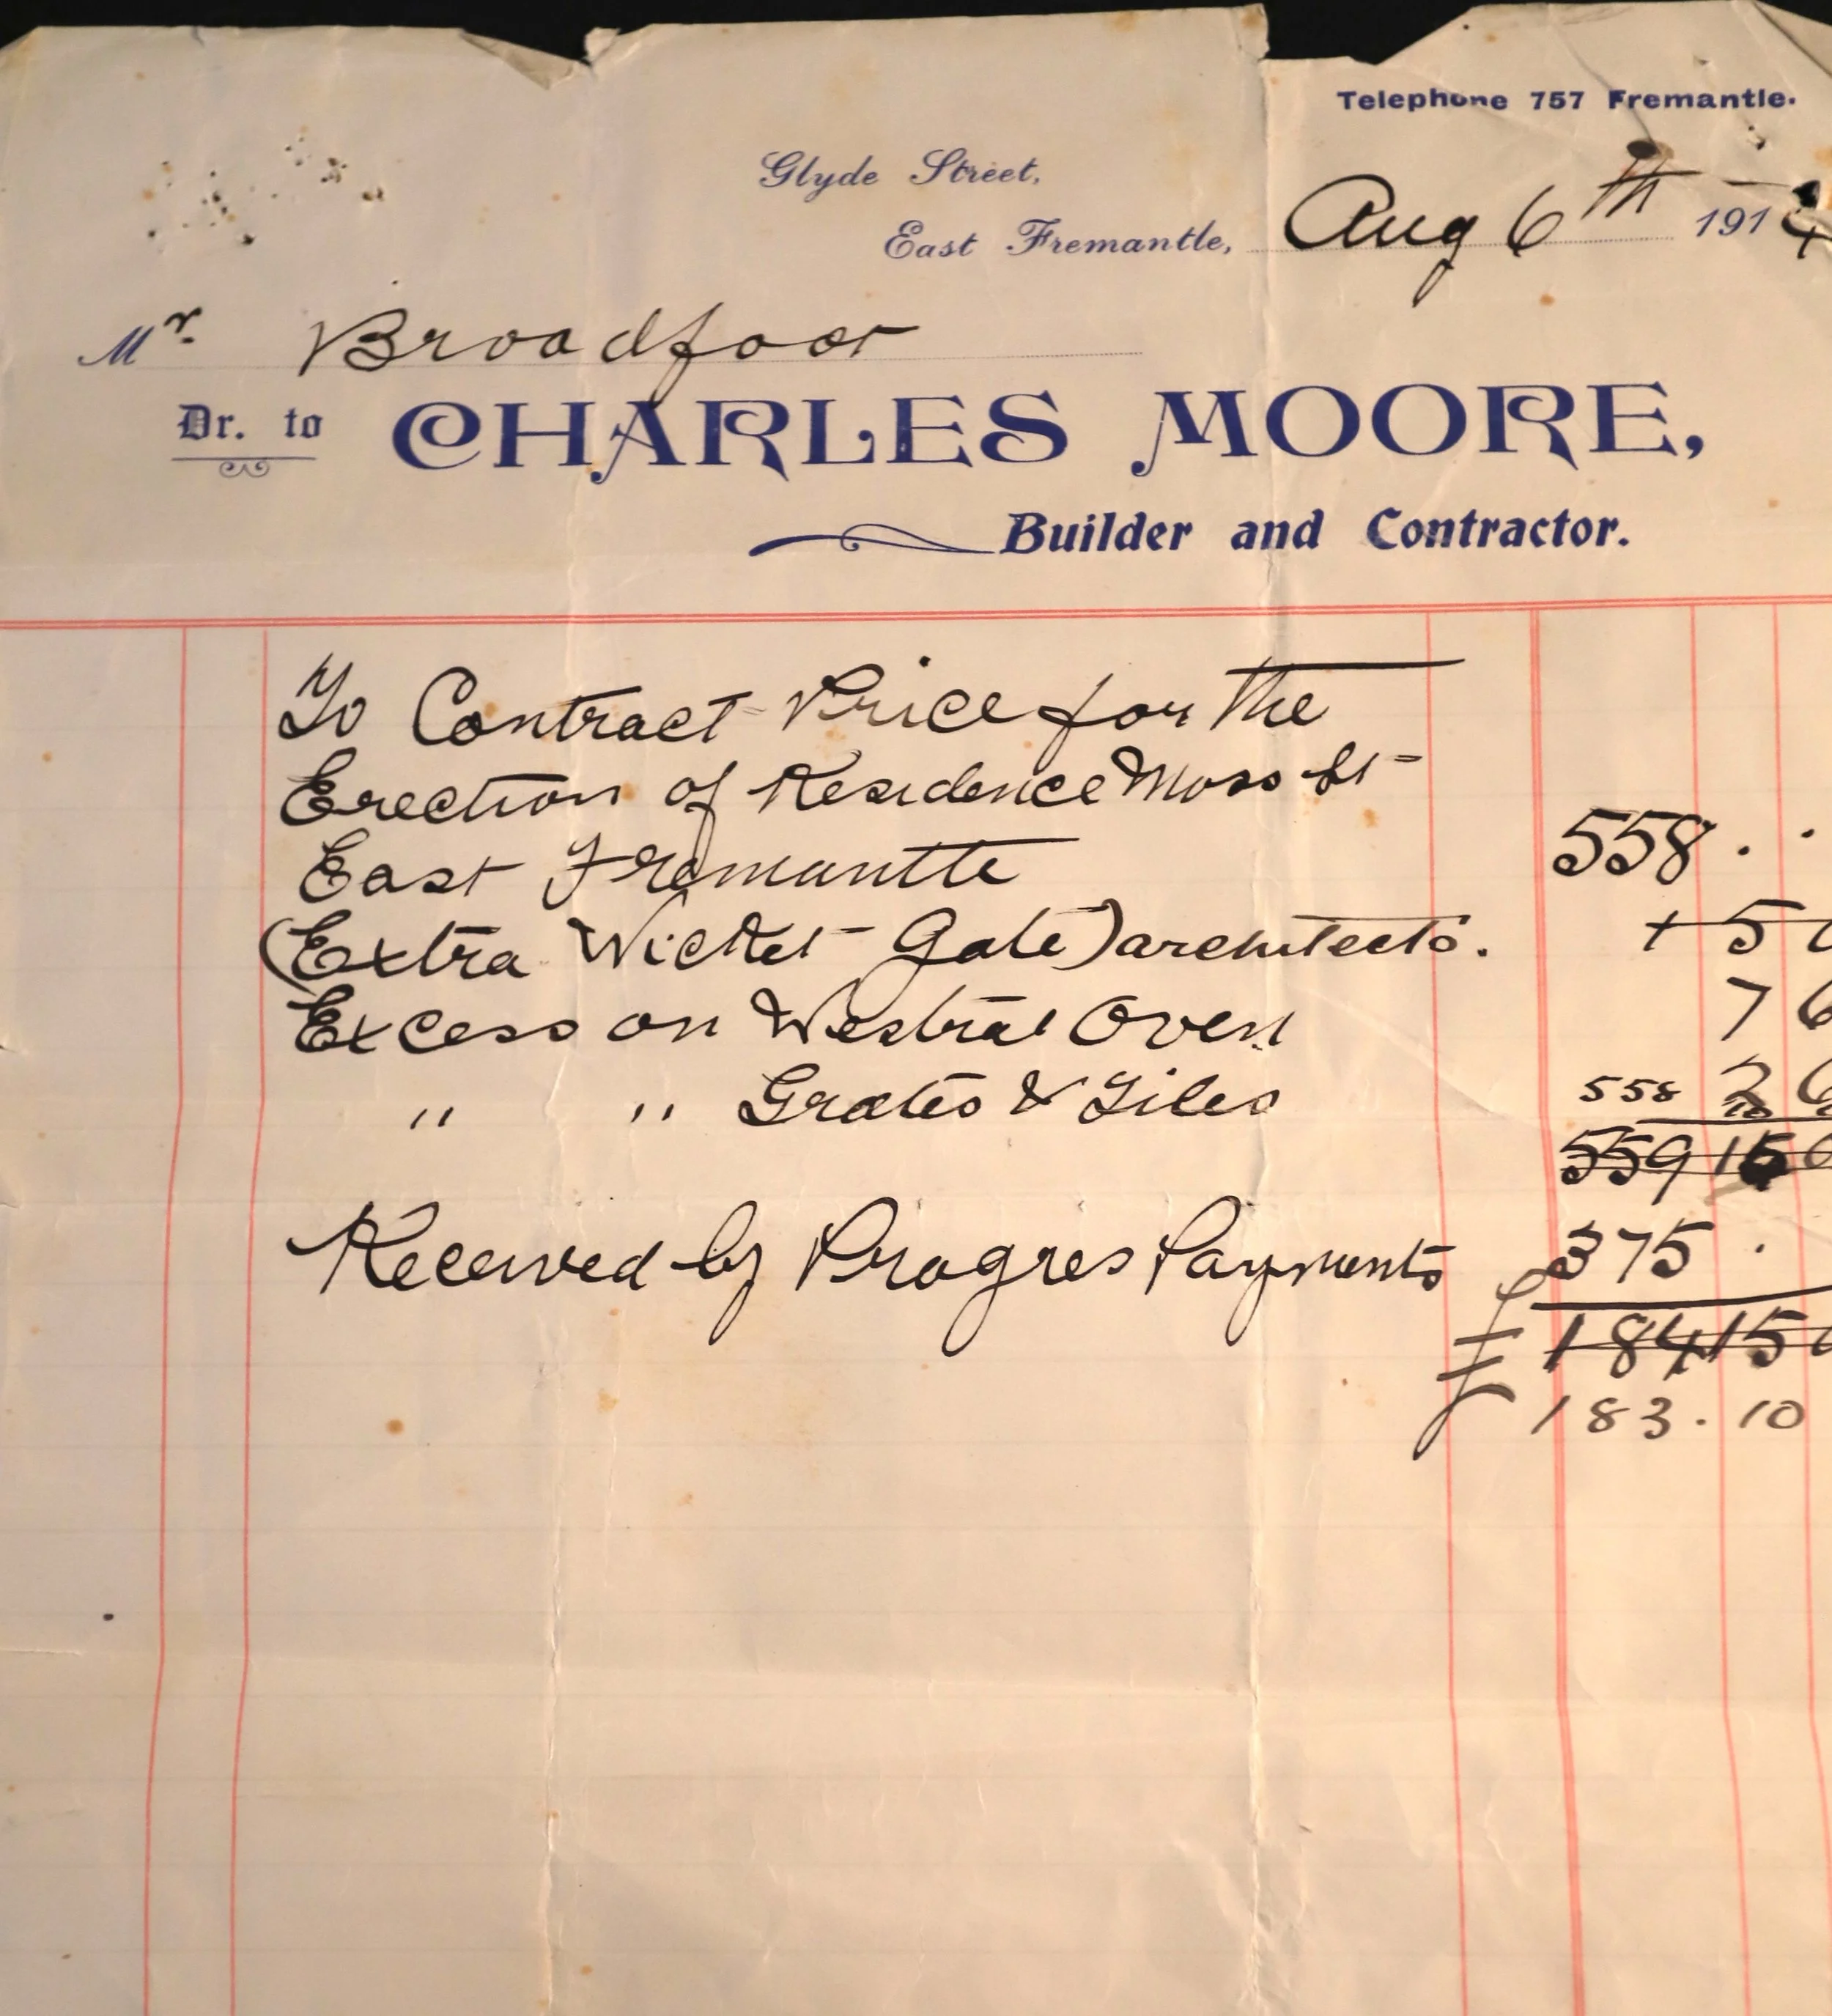 Telephone 757 Fremantle.
Glyde Street,
East Fremantle, Aug 6th 1914
Mr. Broadfoot
Dr. to CHARLES MOORE,
Builder and Contractor.
To Contract Price for the
Erection of Residence Moss St
East Fremantle 558 . .
(Extra Wicket Gate) architects. + 5
Excess on Westral Oven 7 6
" " Grates & Tiles 2 6
558 10
559 15
Received by Progres Payments 375 .
£ 184 15
£ 183. 10